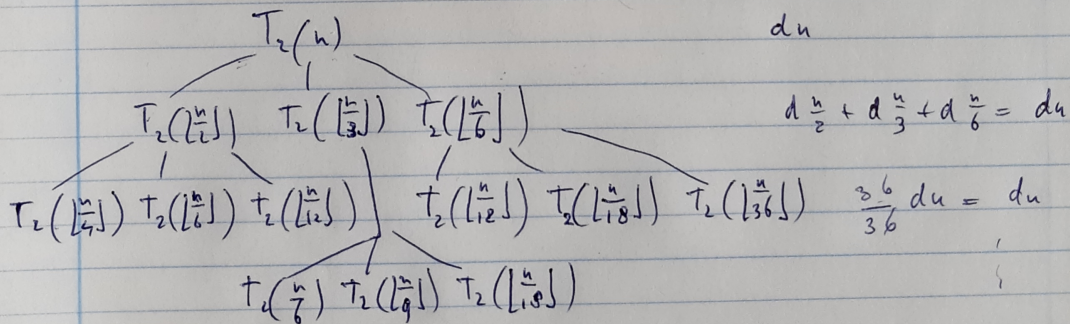 T₂(n) dn
T₂(⌊n/2⌋) T₂(⌊n/3⌋) T₂(⌊n/6⌋) d n/2 + d n/3 + d n/6 = dn
T₂(⌊n/4⌋) T₂(⌊n/6⌋) T₂(⌊n/12⌋) T₂(⌊n/12⌋) T₂(⌊n/18⌋) T₂(⌊n/36⌋) 36/36 dn = dn
T₂(n/6) T₂(⌊n/9⌋) T₂(⌊n/18⌋)